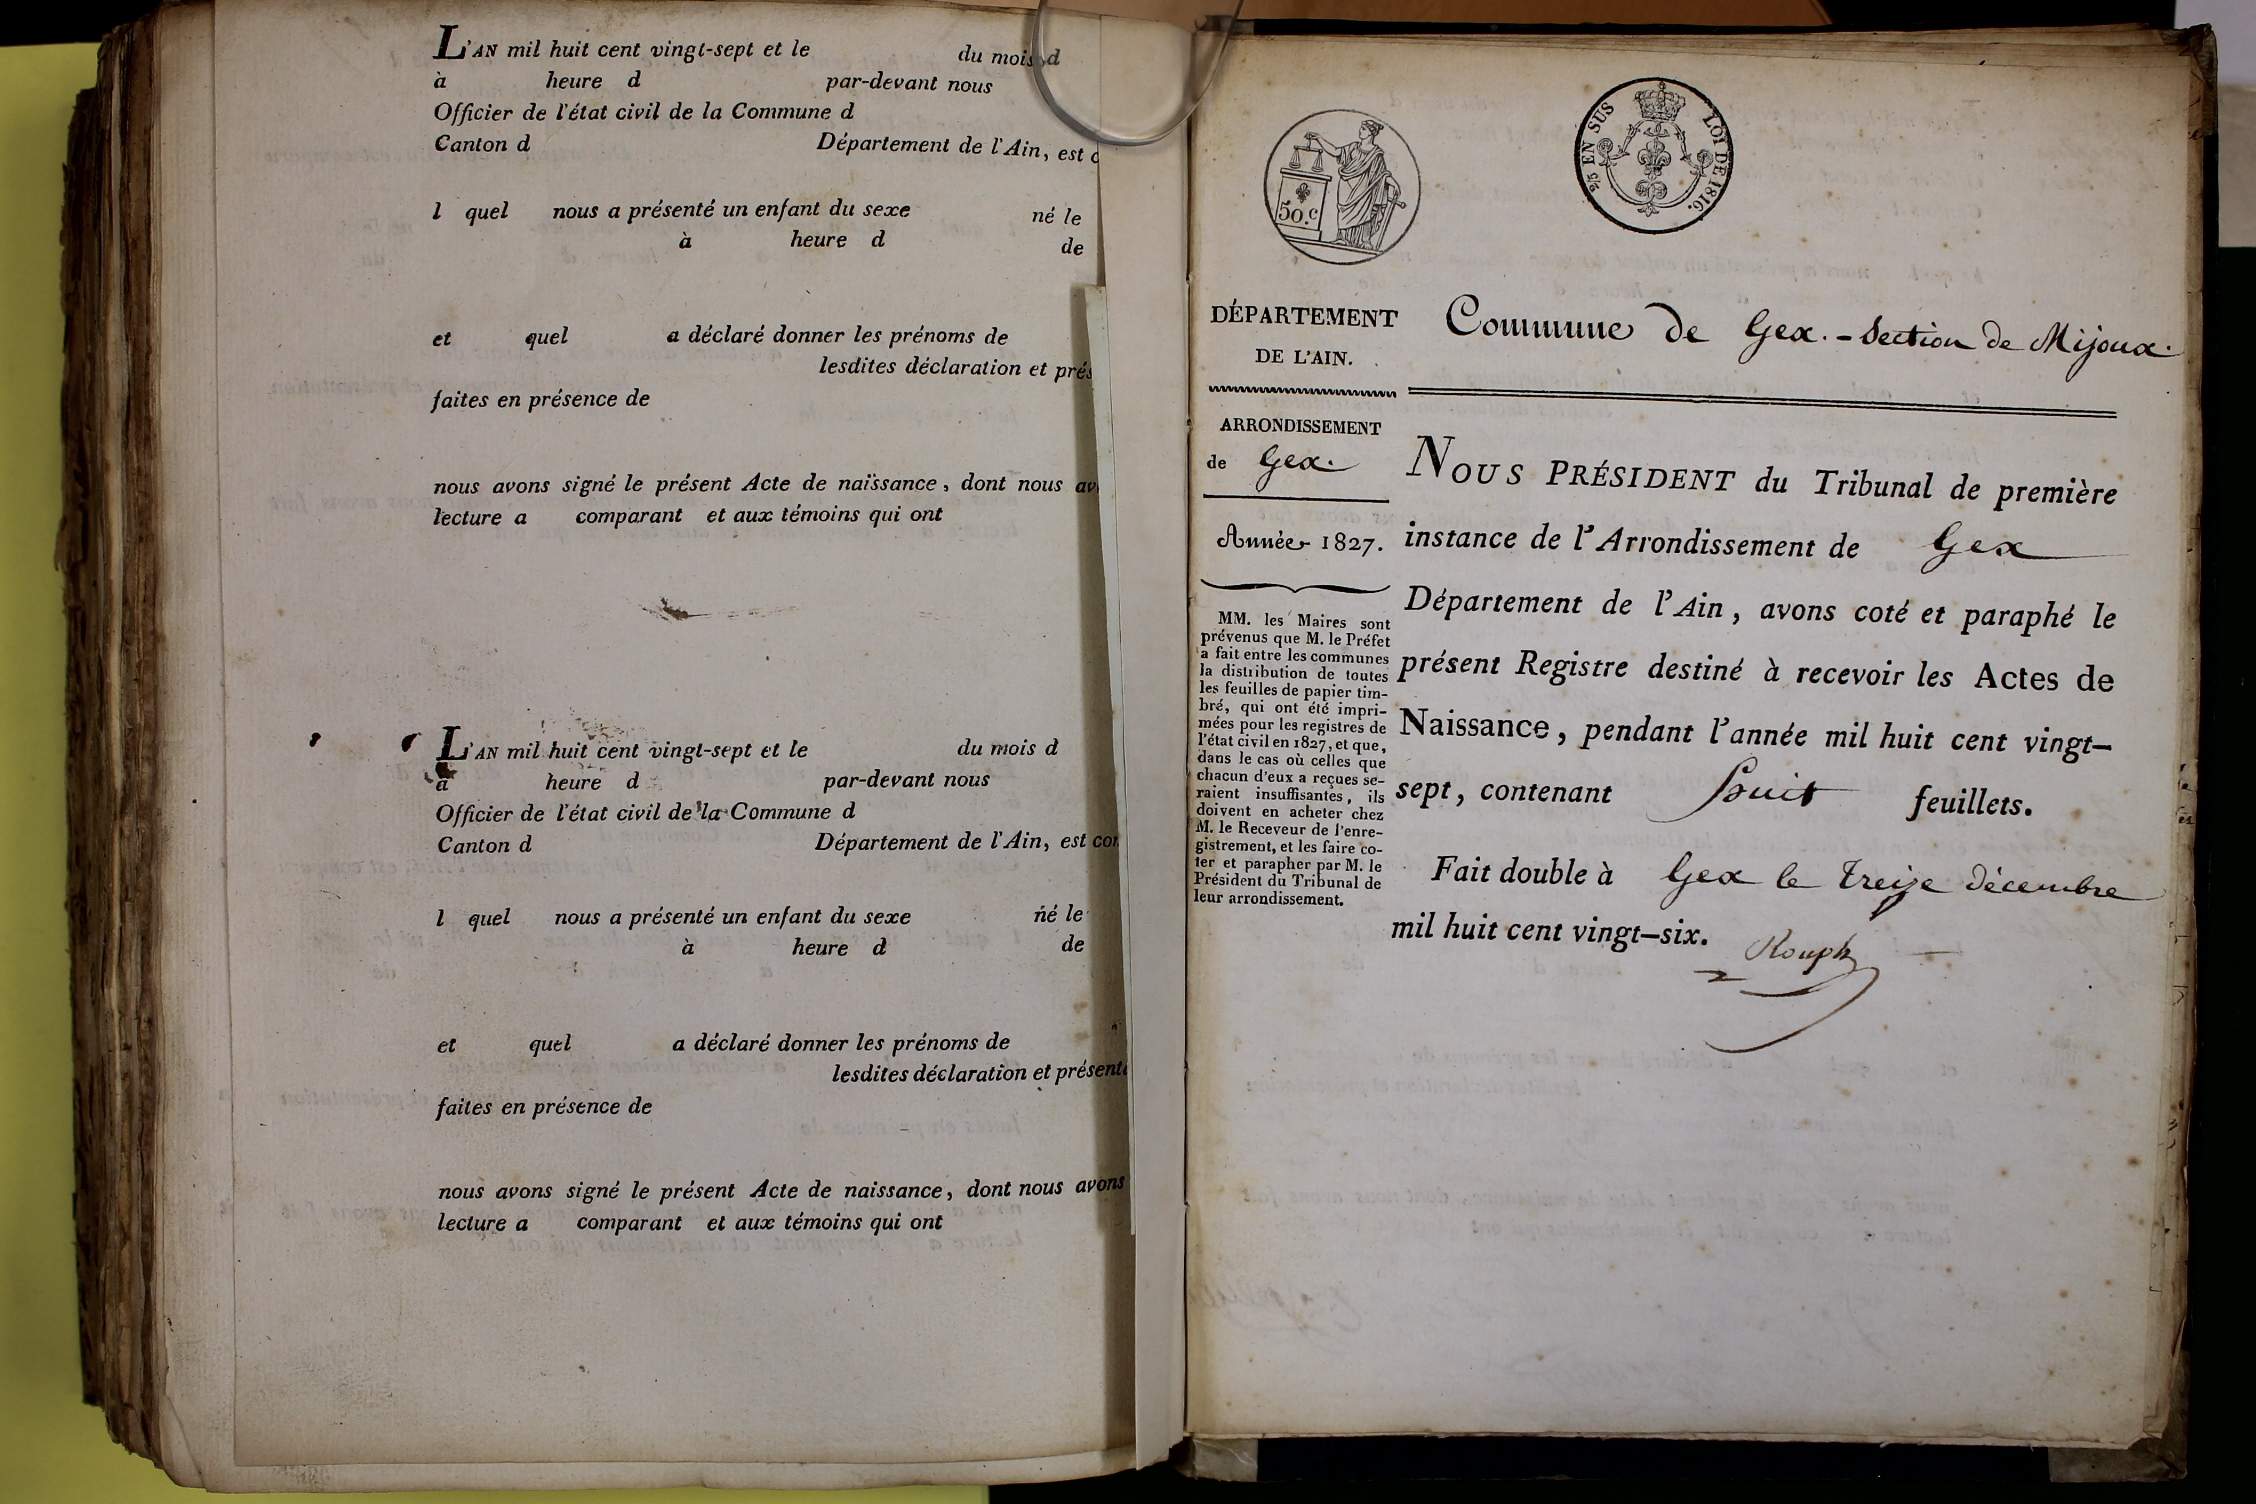 L'AN mil huit cent vingt-sept et le du mois d
à heure d par-devant nous
Officier de l'état civil de la Commune d
Canton d Département de l'Ain, est c
l quel nous a présenté un enfant du sexe né le
à heure d de
et quel a déclaré donner les prénoms de
lesdites déclaration et prés
faites en présence de
nous avons signé le présent Acte de naissance, dont nous av
lecture a comparant et aux témoins qui ont
L'AN mil huit cent vingt-sept et le du mois d
à heure d par-devant nous
Officier de l'état civil de la Commune d
Canton d Département de l'Ain, est com
l quel nous a présenté un enfant du sexe né le
à heure d de
et quel a déclaré donner les prénoms de
lesdites déclaration et présent
faites en présence de
nous avons signé le présent Acte de naissance, dont nous avons
lecture a comparant et aux témoins qui ont
50.c
2/5 EN SUS LOI DE 1816.
DÉPARTEMENT
DE L'AIN.
ARRONDISSEMENT
de Gex.
Année 1827.
MM. les Maires sont
prévenus que M. le Préfet
a fait entre les communes
la distribution de toutes
les feuilles de papier tim-
bré, qui ont été impri-
mées pour les registres de
l'état civil en 1827, et que,
dans le cas où celles que
chacun d'eux a reçues se-
raient insuffisantes, ils
doivent en acheter chez
M. le Receveur de l'enre-
gistrement, et les faire co-
ter et parapher par M. le
Président du Tribunal de
leur arrondissement.
Commune de Gex. - Section de Mijoux.
NOUS PRÉSIDENT du Tribunal de première
instance de l'Arrondissement de Gex
Département de l'Ain, avons coté et paraphé le
présent Registre destiné à recevoir les Actes de
Naissance, pendant l'année mil huit cent vingt-
sept, contenant huit feuillets.
Fait double à Gex le treize décembre
mil huit cent vingt-six.
Rouph